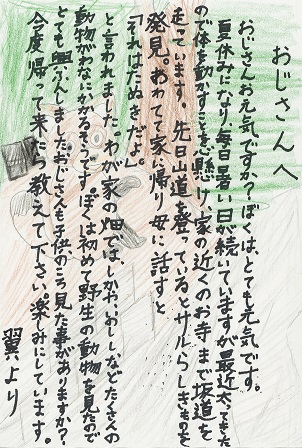 おじさんへ
おじさんお元気ですか?ぼくは、とても元気です。
夏休みになり、毎日暑い日が続いていますが最近太ってきた
ので体を動かすことを心懸け、家の近くのお寺まで坂道を
走っています。先日山道を登っているとサルらしきものを
発見。あわてて家に帰り母に話すと
「それはたぬきだよ。」
と言われました。わが家の畑では、しかやいのしなどたくさんの
動物がわなにかかるそうです。ぼくは初めて野生の動物を見たので
とても興ふんしました。おじさんも子供のころ見た事がありますか?
今度帰って来たら教えて下さい。楽しみにしています。
翼より